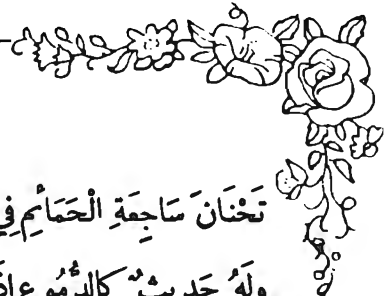 تَحْنَانَ سَاجِعَةِ الْحَمَائِمِ فِي
وَلَهُ حَدِيثٌ كَالدُّمُوعِ إِذَ